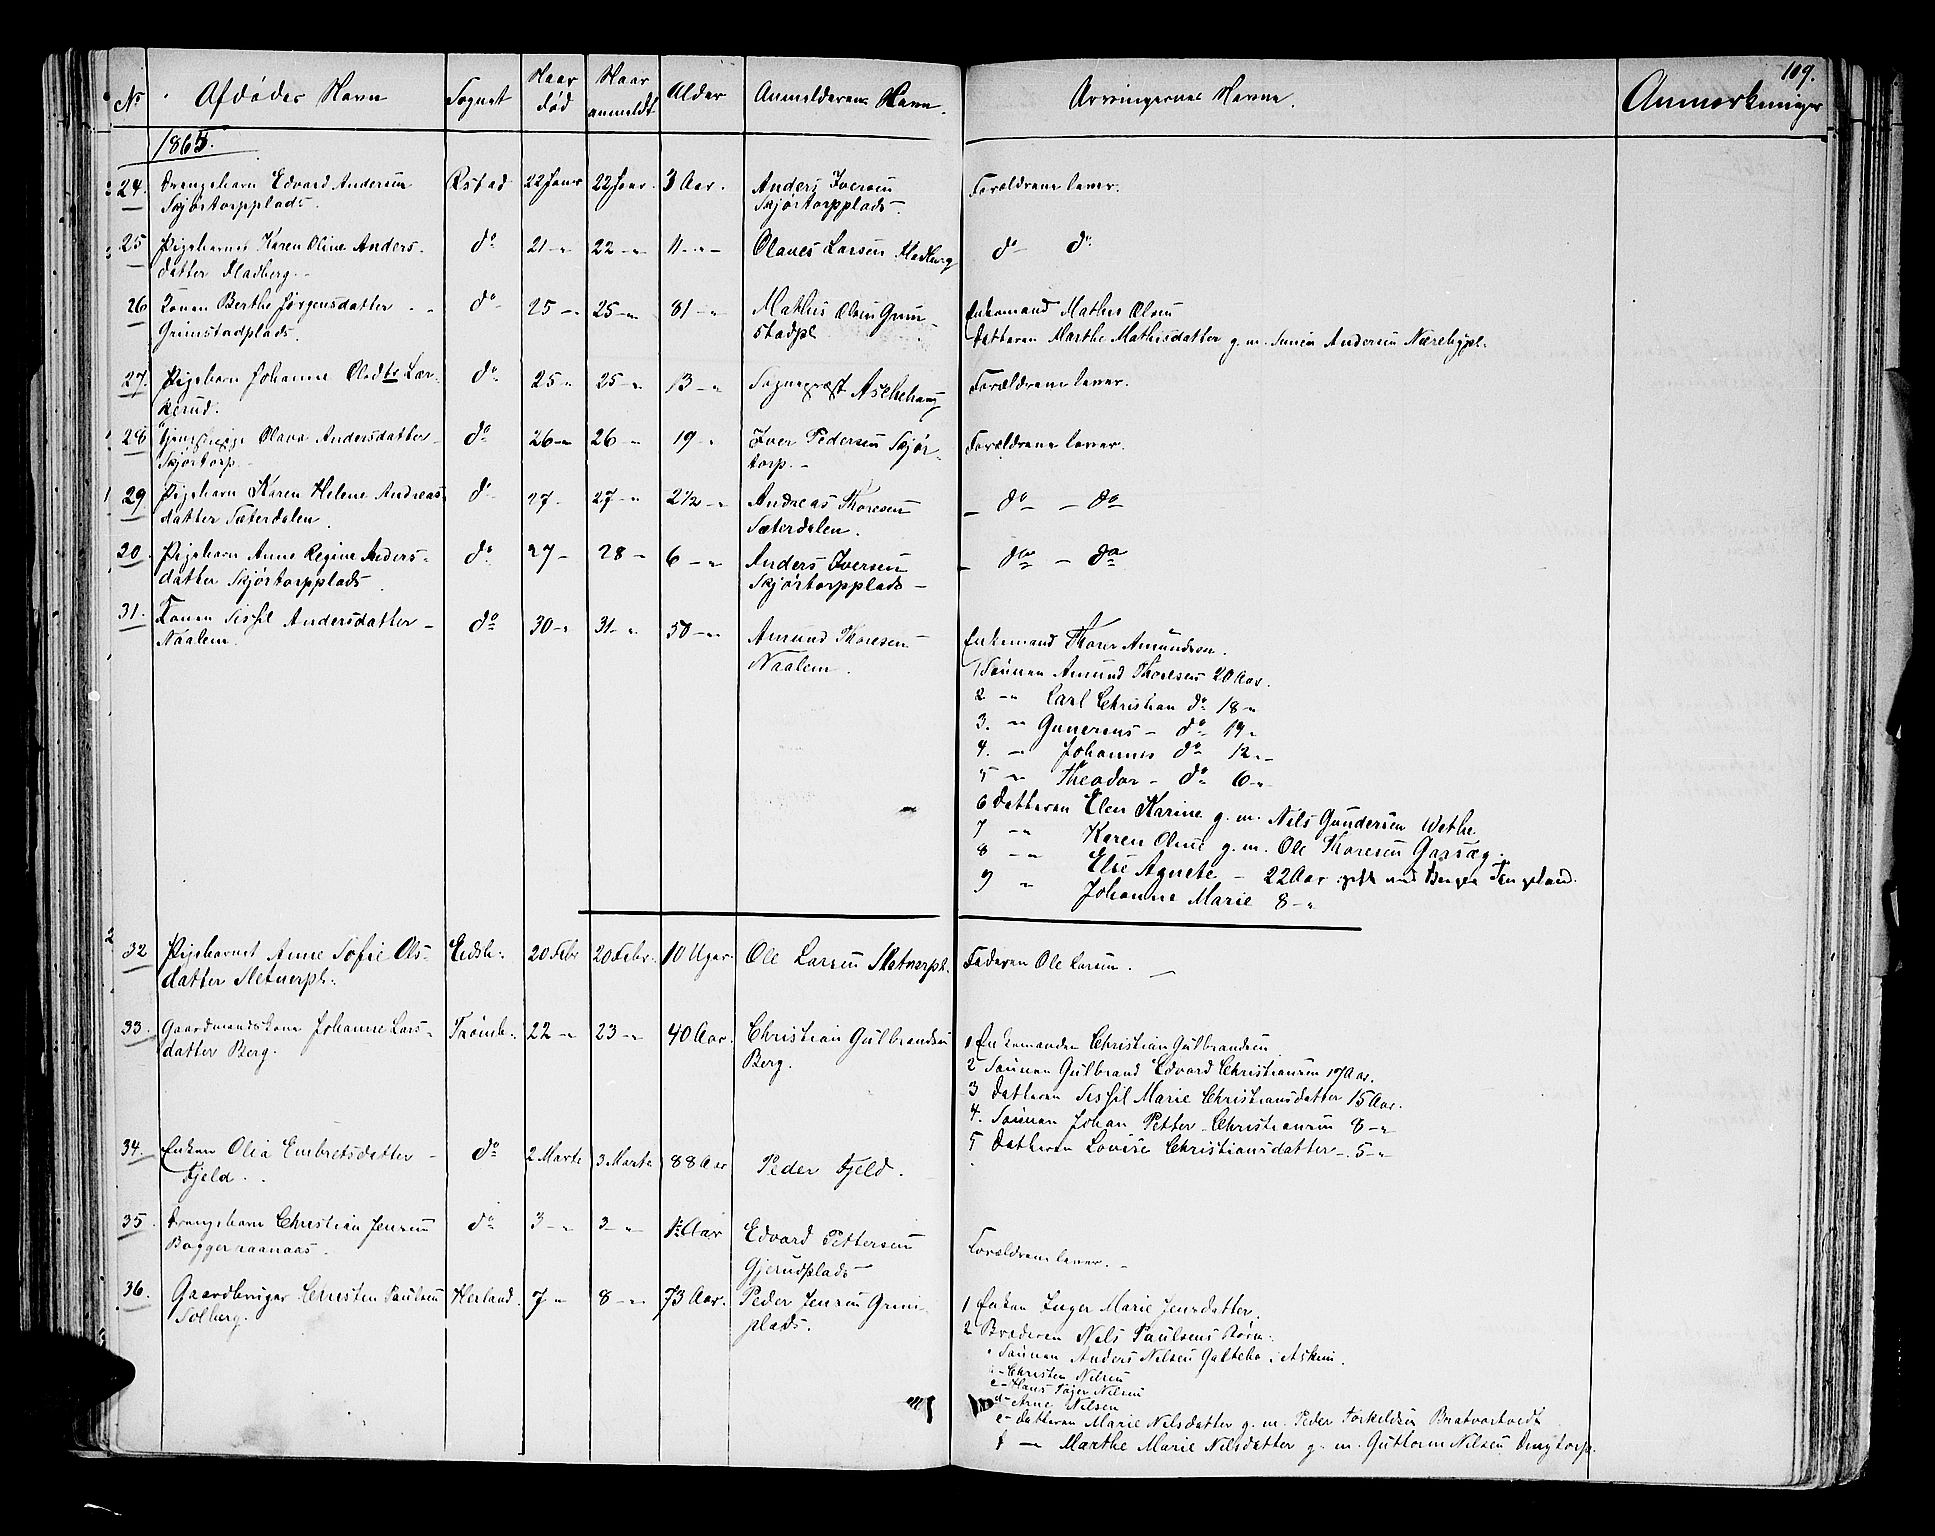 109.
No Afdødes Navn Sognet Naar død Naar anmeldt Alder Anmelderens Navn. Arvingernes Navne. Anmærkninger
1865.
24. Drengebarn Edvard Andersen Skjørtorpplads. Østad 22 Janr 22 Janr. 3 Aar. Anders Iversen Skjørtorpplads. Forældrene lever.
25 Pigebarnet Karen Oline Andersdatter Fladberg. do 21 - 22 - 11 - Olaves Larsen Fladberg do do
26 Konen Berthe Jørgensdatter Grimstadplads. do 25 - 25 - 81 - Mathis Olsen Grimstadpl. Enkemand Mathis Olsen
Datteren Marthe Mathisdatter g. m. Simen Andersen Nærebypl.
27. Pigebarn Johanne Olsdtr Lærkerud. do 25 - 25 - 13 - Sognepræst Aschehoug Forældrene lever.
28 Tjenestepige Olava Andersdatter Skjørtorp. do 26 - 26 - 19 - Iver Pedersen Skjørtorp. Forældrene lever.
29 Pigebarn Karen Helene Andreasdatter Sæterdalen. do 27 - 27 - 2 1/2 - Andreas Thoresen Sæterdalen. do - do
20. Pigebarn Anne Regine Andersdatter Skjørtorpplads. do 27 - 28 - 6 - Anders Iversen Skjørtorpplads do - do
31. Konen Sissil Andersdatter Naalem. do 30 - 31 - 50 - Amund Thoresen Naalem. Enkemand Thorer Amundsen.
1 Sønnen Amund Thoresen 20 Aar.
2 - Carl Christian do 18 -
3. - Gunerius - do 14 -
4. - Johannes do 12 -
5 - Theodor - do 6 -
6 Datteren Elen Karine g. m. Nils Gundersen Wethe
7 - Karen Oline g. m. Ole Thoresen
8 - Else Agnete - 22 Aar gift med
9 - Johanne Marie 8 -
32 Pigebarnet Anne Sofie Olsdatter Sletnerpl. Eidsb. 20 Febr 20 Febr. 10 Uger. Ole Larsen Sletnerpl. Faderen Ole Larsen.
33. Gaardmandskone Johanne Larsdatter Berg. Trømb. 22 - 23 - 40 Aar. Christian Gulbrandsen Berg. 1 Enkemanden Christian Gulbrandsen
2 Sønnen Gulbrand Edvard Christiansen 17 Aar.
3 Datteren Sissil Marie Christiansdatter 15 Aar.
4. Sønnen Johan Petter Christiansen 8 -
5 Datteren Lovise Christiansdatter - 5 -
34. Enken Olia Embretsdatter Fjeld. do 2 Marts 3 Marts 88 Aar Peder Fjeld.
35. Drengebarn Christian Jensen Baggerraanaas. do 3 - 3 - 1 Aar Edvard Pettersen Gjerudplads Forældrene lever.
36. Gaardbruger Christen Paulsen Solberg. Herland. 7 - 8 - 73 Aar. Peder Jensen Grimplads. 1 Enken Inger Marie Jensdatter.
2 Broderen Nils Paulsens Børn.
a Sønnen Anders Nilsen Galtebo i Askim.
b - Christen Nilsen
c - Hans Peter Nilsen
d - Arne Nilsen
e - Datteren Marie Nilsdatter g. m. Peder Torkeldsen Bratvortvedt
f - Marthe Marie Nilsdatter g. m. Guttorm Nilsen